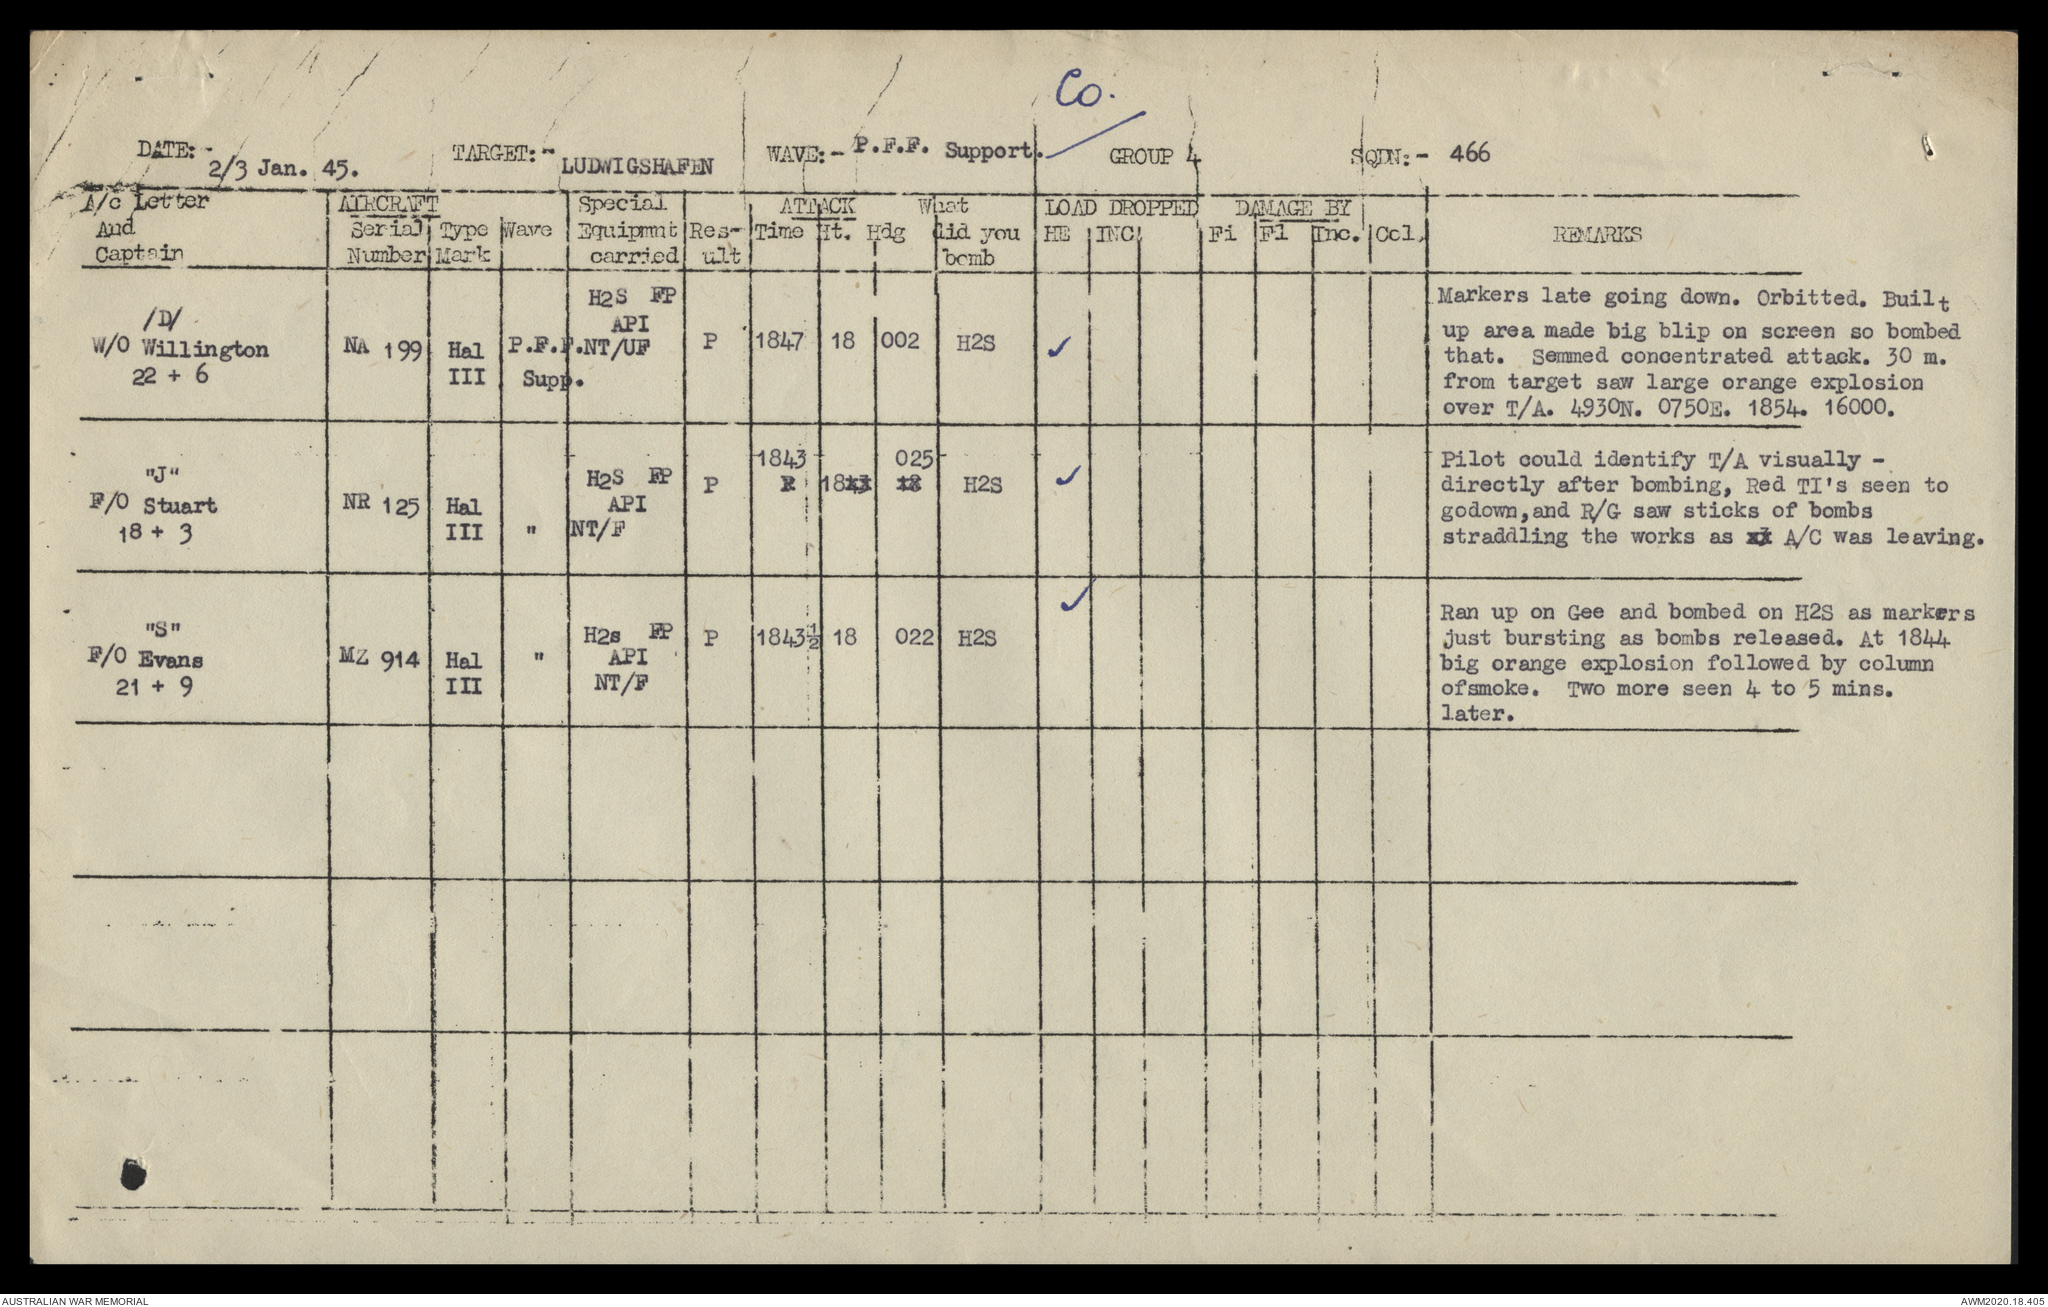 Co.
DATE:- 2/3 Jan. 45. TARGET:- LUDWIGSHAFEN WAVE:- P.F.F. Support. GROUP 4 SQDN:- 466
A/c Letter AIRCRAFT Special ATTACK What LOAD DROPPED DAMAGE BY
And Serial Type Wave Equipmnt Res- Time Ht. Hdg did you HE INC Fi Fl Inc. Col. REMARKS
Captain Number Mark carried ult bomb
H2S FP Markers late going down. Orbitted. Built
/D/ API up area made big blip on screen so bombed
W/O Willington NA 199 Hal P.F.F. NT/UF P 1847 18 002 H2S ✓ that. Semmed concentrated attack. 30 m.
22 + 6 III Supp. from target saw large orange explosion
over T/A. 4930N. 0750E. 1854. 16000.
1843 025 Pilot could identify T/A visually -
"J" H2S FP P 18 H2S ✓ directly after bombing, Red TI's seen to
F/O Stuart NR 125 Hal API godown,and R/G saw sticks of bombs
18 + 3 III " NT/F straddling the works as A/C was leaving.
✓ Ran up on Gee and bombed on H2S as markers
"S" H2s FP P 1843½ 18 022 H2S just bursting as bombs released. At 1844
F/O Evans MZ 914 Hal " API big orange explosion followed by column
21 + 9 III NT/F ofsmoke. Two more seen 4 to 5 mins.
later.
AUSTRALIAN WAR MEMORIAL AWM2020.18.405